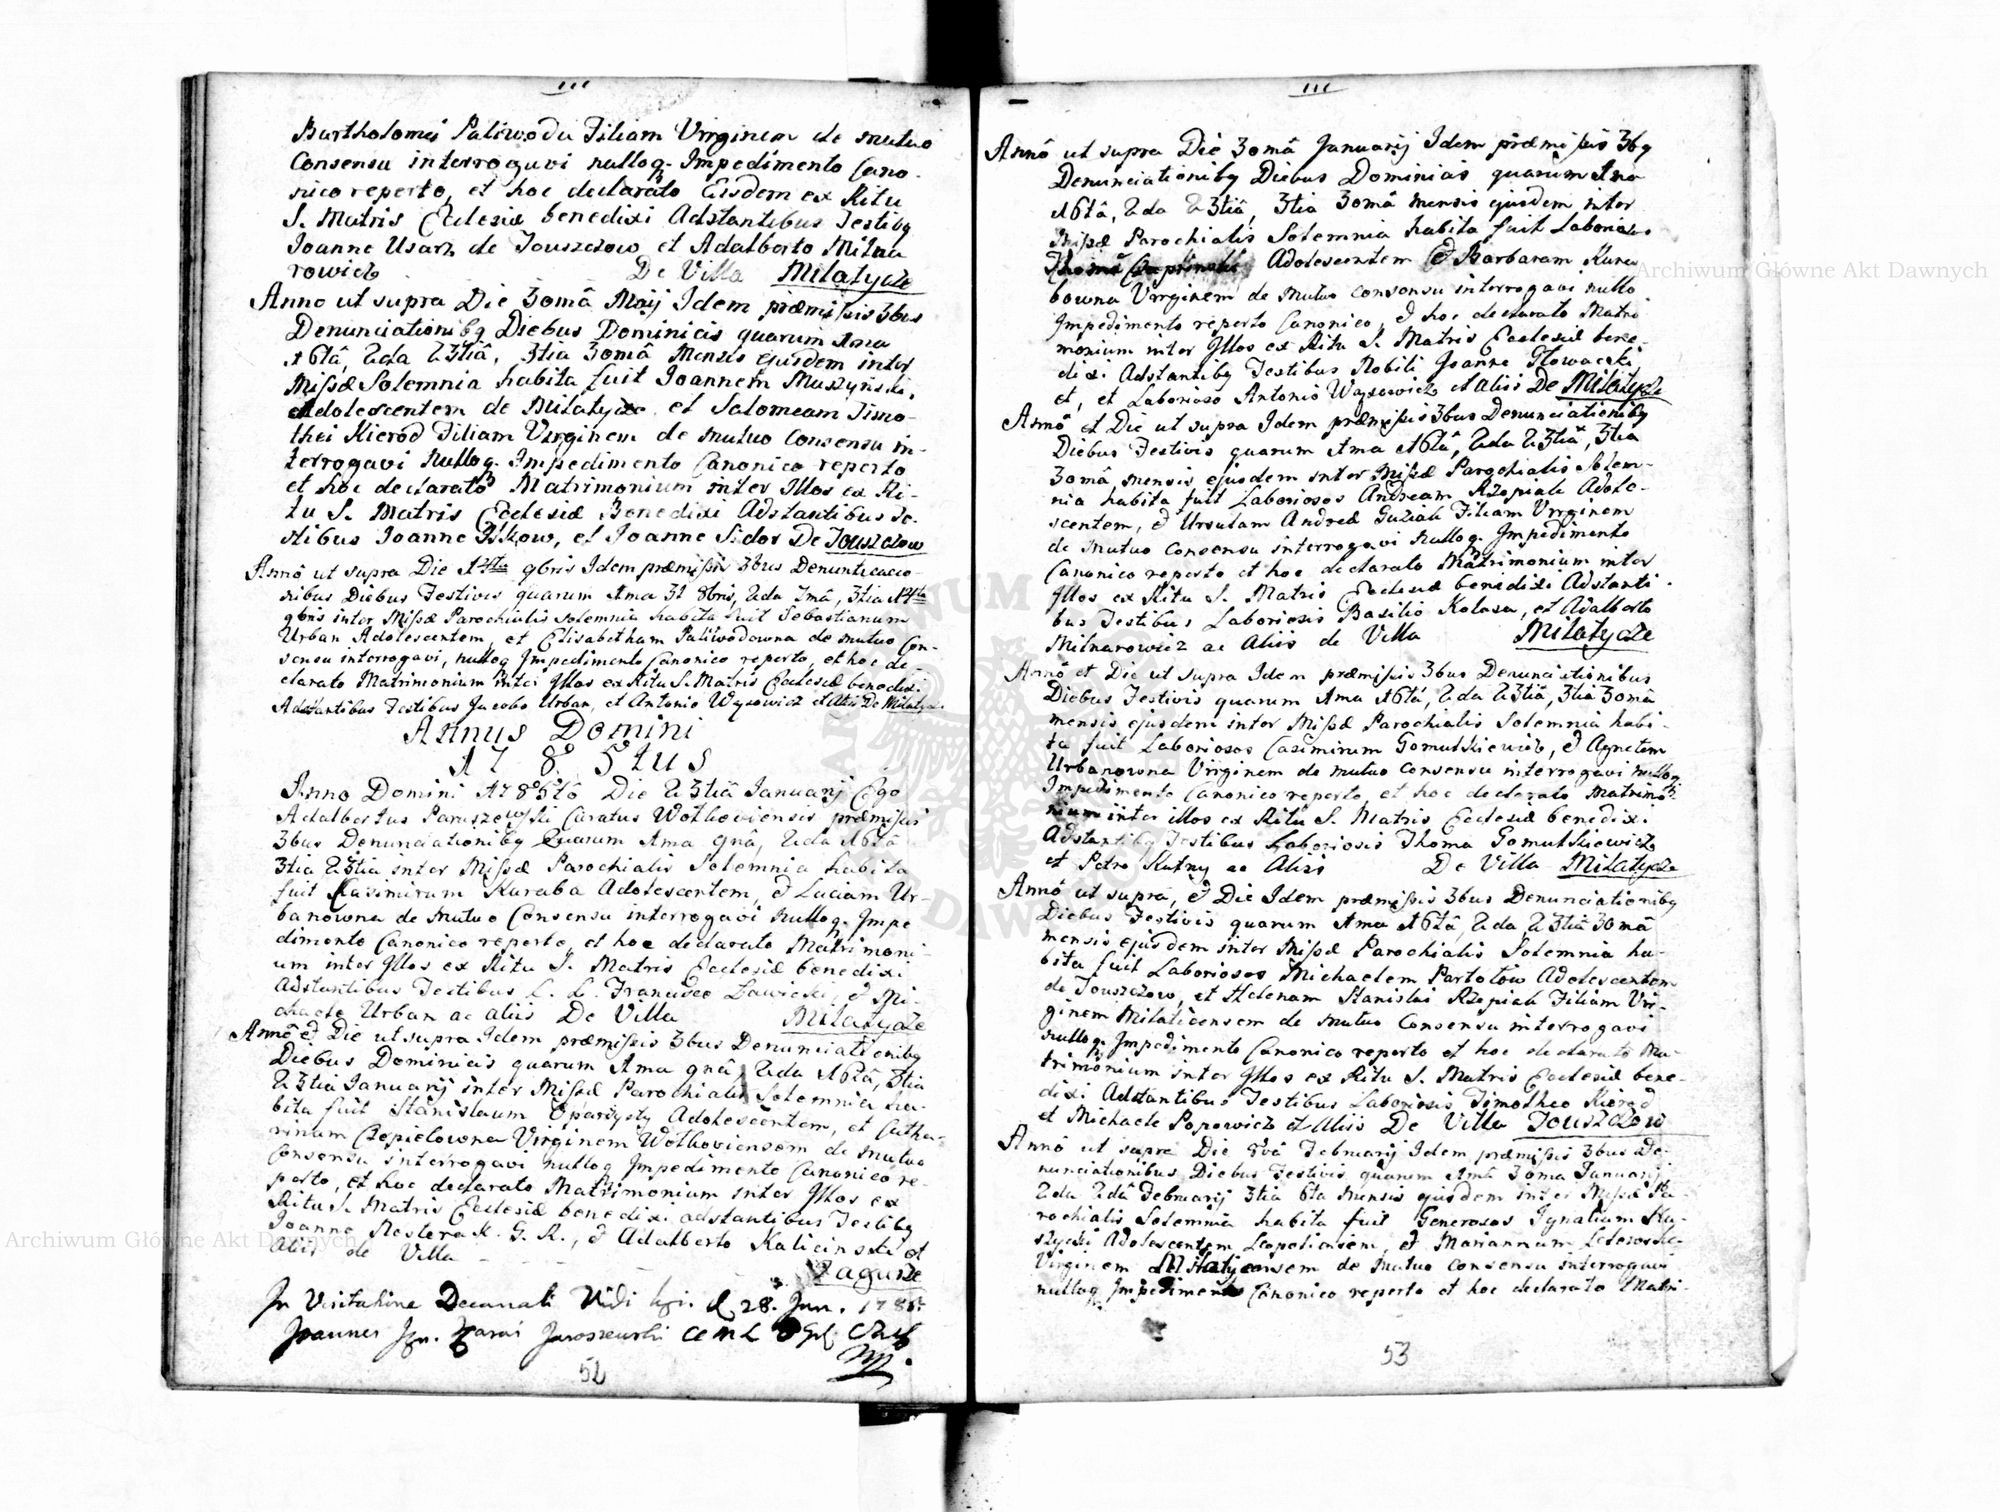 Bartholomei Paliwoda Filiam Virginem de mutuo
Consensu interrogavi nulloq. Impedimento Cano-
nico reperto, et hoc declarato Eosdem ex Ritu
S. Matris Ecclesiæ benedixi Adstantibus Testibg
Joanne Usarz de Touszczow et Adalberto Milna
rowicz De Villa Milatycze
Anno ut supra Die 30mâ Maij Idem præmißis 3bus
Denunciationibg Diebus Dominicis quarum 1ma
16tâ, 2da 23tiâ, 3tia 30mâ Mensis ejusdem inter
Mißæ Solemnia habita fuit Joannem Muszynski,
Adolescentem de Milatycze et Salomeam Timo-
thei Kierod Filiam Virginem de mutuo Consensu in-
terrogavi Nulloq. Impedimento Canonico reperto
et hoc declarato Matrimonium inter Illos ex Ri-
tu S. Matris Ecclesiæ Benedixi Adstantibus Te-
stibus Joanne Iskow, et Joanne Sidor De Touszczow
Annô ut supra Die 9bris Idem præmißis 3bus Denuntiacio-
nibus Diebus Festivis quarum 1ma 31 8bris, 2da 1mâ, 3tia
9bris inter Mißæ Parochialis solemnia habita fuit Sebastianum
Urban Adolescentem, et Elisabetham Paliwodowna de mutuo Con-
sensu interrogavi, nulloq Impedimento Canonico reperto, et hoc de-
clarato Matrimonium inter Illos ex Ritu S. Matris Ecclesiæ benedixi
Adstantibus Testibus Jacobo Urban, et Antonio Wąsowicz et Aliis De Milatycze
Annus Domini
1785tus
Anno Domini 1785tô Die 23tiâ Januarij Ego
Adalbertus Paruszewski Curatus Wolkoviensis præmißis
3bus Denunciationibg Quarum 1ma 9nâ, 2da 16tâ
3tia 23tia inter Mißæ Parochialis Solemnia habita
fuit Casimirum Kuraba Adolescentem, & Luciam Ur-
banowna de Mutuo Consensu interrogavi nulloq. Impe
dimento Canonico reperto, et hoc declarato Matrimoni-
um inter Illos ex Ritu S. Matris Ecclesiæ benedixi
Adstantibus Testibus L. L. Francisco Lawicki, & Mi-
chaele Urban ac aliis De Villa Milatycze
Annô & Die ut supra Idem præmißis 3bus Denunciationibg
Diebus Dominicis quarum 1ma 9nâ, 2da 16tâ, 3tia
23tia Januarij inter Mißæ Parochialis Solemnia ha-
bita fuit Stanislaum Oparzysty Adolescentem, et Catha-
rinam Czepielowna Virginem Wolkoviensem de mutuo
Consensu interrogavi nulloq Impedimento Canonico re-
perto, et hoc declarato Matrimonium inter Illos ex
Ritu S. Matris Ecclesiæ benedixi adstantibus Testibg
Joanne Nesterak. G. R., & Adalberto Kalicinski et
Aliis de Villa Zagurze
In Visitatione Decanali Vidi d 28. Jan. 178
Joannes Jgn. Jaroszewski
52
Annô ut supra Die 30mâ Januarij Idem præmißis 3bg
Denunciationibg Diebus Dominicis quarum 1ma
16tâ, 2da 23tiâ, 3tia 30mâ mensis ejusdem inter
Mißæ Parochialis Solemnia habita fuit Laboriosos
Thomam Adolescentem & Barbaram Kura
bowna Virginem de mutuo consensu interrogavi nullo
Impedimento reperto Canonico, & hoc declarato Matri
monium inter Illos ex Ritu S. Matris Ecclesiæ bene-
dixi Adstantibg Testibus Nobili Joanne Głowacki,
et, et Laborioso Antonio Wąsowicz et Aliis De Milatycze
Annô et Die ut supra Idem præmißis 3bus Denunciationibg
Diebus Festivis quarum 1ma 16tâ, 2da 23tiâ, 3tia
30mâ mensis ejusdem inter Mißæ Parochialis Solem-
nia habita fuit Laboriosos Andream Rzepiak Adole-
scentem, & Ursulam Andreæ Guziak Filiam Virginem
de mutuo consensu interrogavi nulloq. Impedimento
Canonico reperto et hoc declarato Matrimonium inter
Illos ex Ritu S. Matris Ecclesiæ benedixi Adstanti-
bus Testibus Laboriosis Basilio Kolasa, et Adalberto
Milnarowicz ac Aliis de Villa Milatycze
Annô et Die ut supra Idem præmißis 3bus Denunciationibus
Diebus Festivis quarum 1ma 16tâ, 2da 23tiâ, 3tiâ 30mâ
mensis ejusdem inter Mißæ Parochialis Solemnia habi-
ta fuit Laboriosos Casimirum Gomulkiewicz, & Agnetem
Urbanowna Virginem de mutuo consensu interrogavi nulloq
Impedimento Canonico reperto et hoc declarato Matrimo-
nium inter illos ex Ritu S. Matris Ecclesiæ benedixi
Adstantibg Testibus Laboriosis Thoma Gomulkiewicz
et Petro Kutny ac Aliis De Villa Milatycze
Annô ut supra, & Die Idem præmißis 3bus Denunciationibg
Diebus Festivis quarum 1ma 16tâ, 2da, 23tiâ 30mâ
mensis ejusdem inter Mißæ Parochialis Solemnia ha-
bita fuit Laboriosos Michaelem Partolow Adolescentem
de Touszczow, et Helenam Stanislai Rzepiak Filiam Vir-
ginem Milaticensem de mutuo Consensu interrogavi
nulloq. Impedimento Canonico reperto et hoc declarato Ma-
trimonium inter Illos ex Ritu S. Matris Ecclesiæ bene-
dixi Adstantibus Testibus Laboriosis Timotheo Kierod
et Michaele Popowicz et Aliis De Villa Touszczow
Annô ut supra Die Februarij Idem præmißis 3bus De-
nunciationibus Diebus Festivis quarum 1mâ 30ma Januarij
2da 2dâ Februarij 3tiâ 6ta mensis ejusdem inter Mißæ Pa-
rochialis Solemnia habita fuit Generosos Ignatium
Adolescentem Leopoliensem, & Mariannam
Virginem Milatycensem de Mutuo Consensu interrogavi
nulloq Impedimento Canonico reperto et hoc declarato Matri-
53
Archiwum Główne Akt Dawnych
Archiwum Główne Akt Dawnych